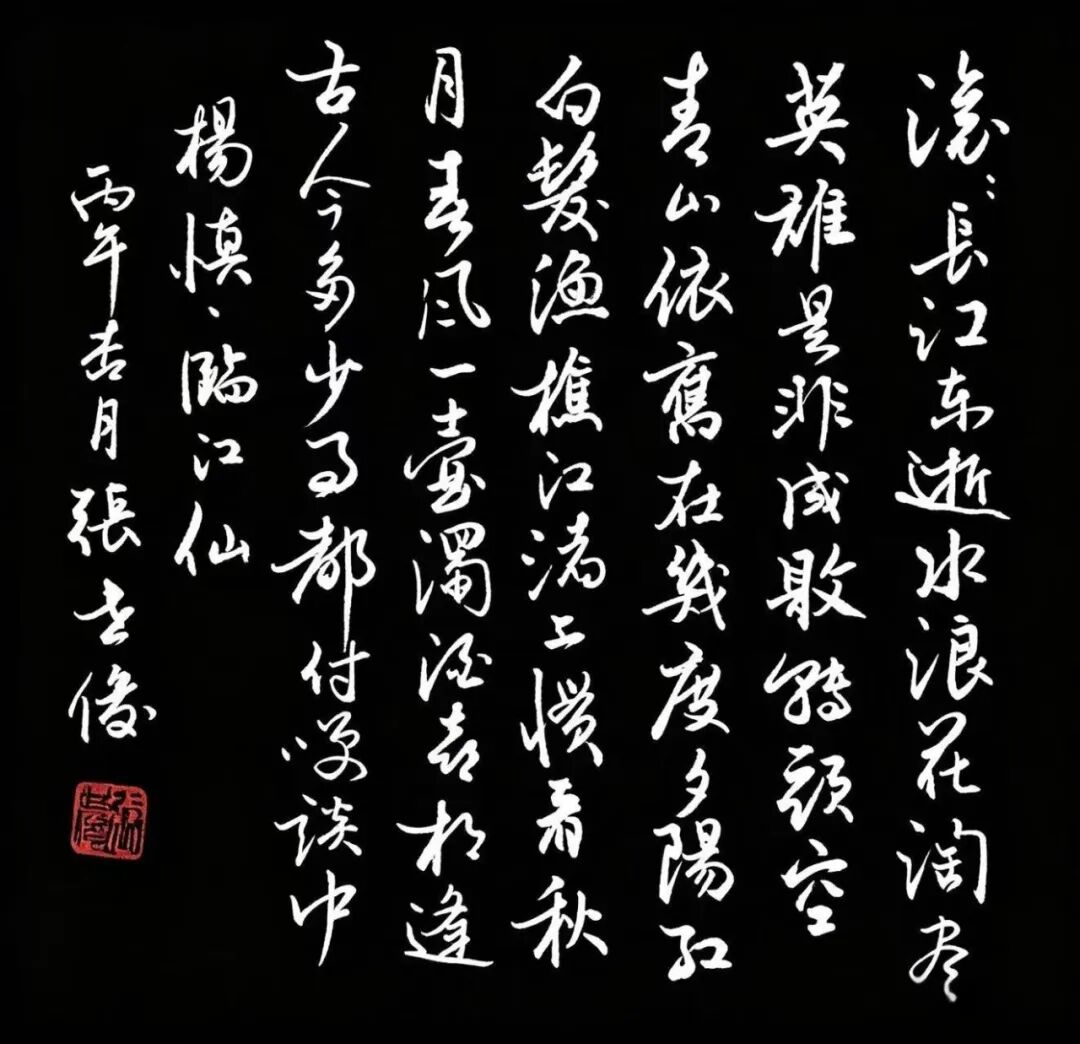 滚〻長江东逝水浪花淘尽
英雄是非成敗轉頭空
青山依舊在幾度夕陽紅
白髮漁樵江渚上慣看秋
月春风一壺濁酒喜相逢
古今多少事都付咲談中
楊慎、臨江仙
丙午杏月張世俊